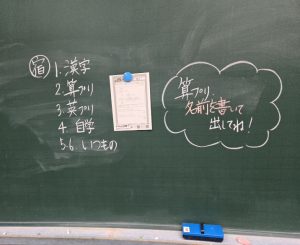 宿
1. 漢字
2. 算プリ
3. 英プリ
4. 自学
5.6. いつもの
算プリ
名前を書いて
出してね!